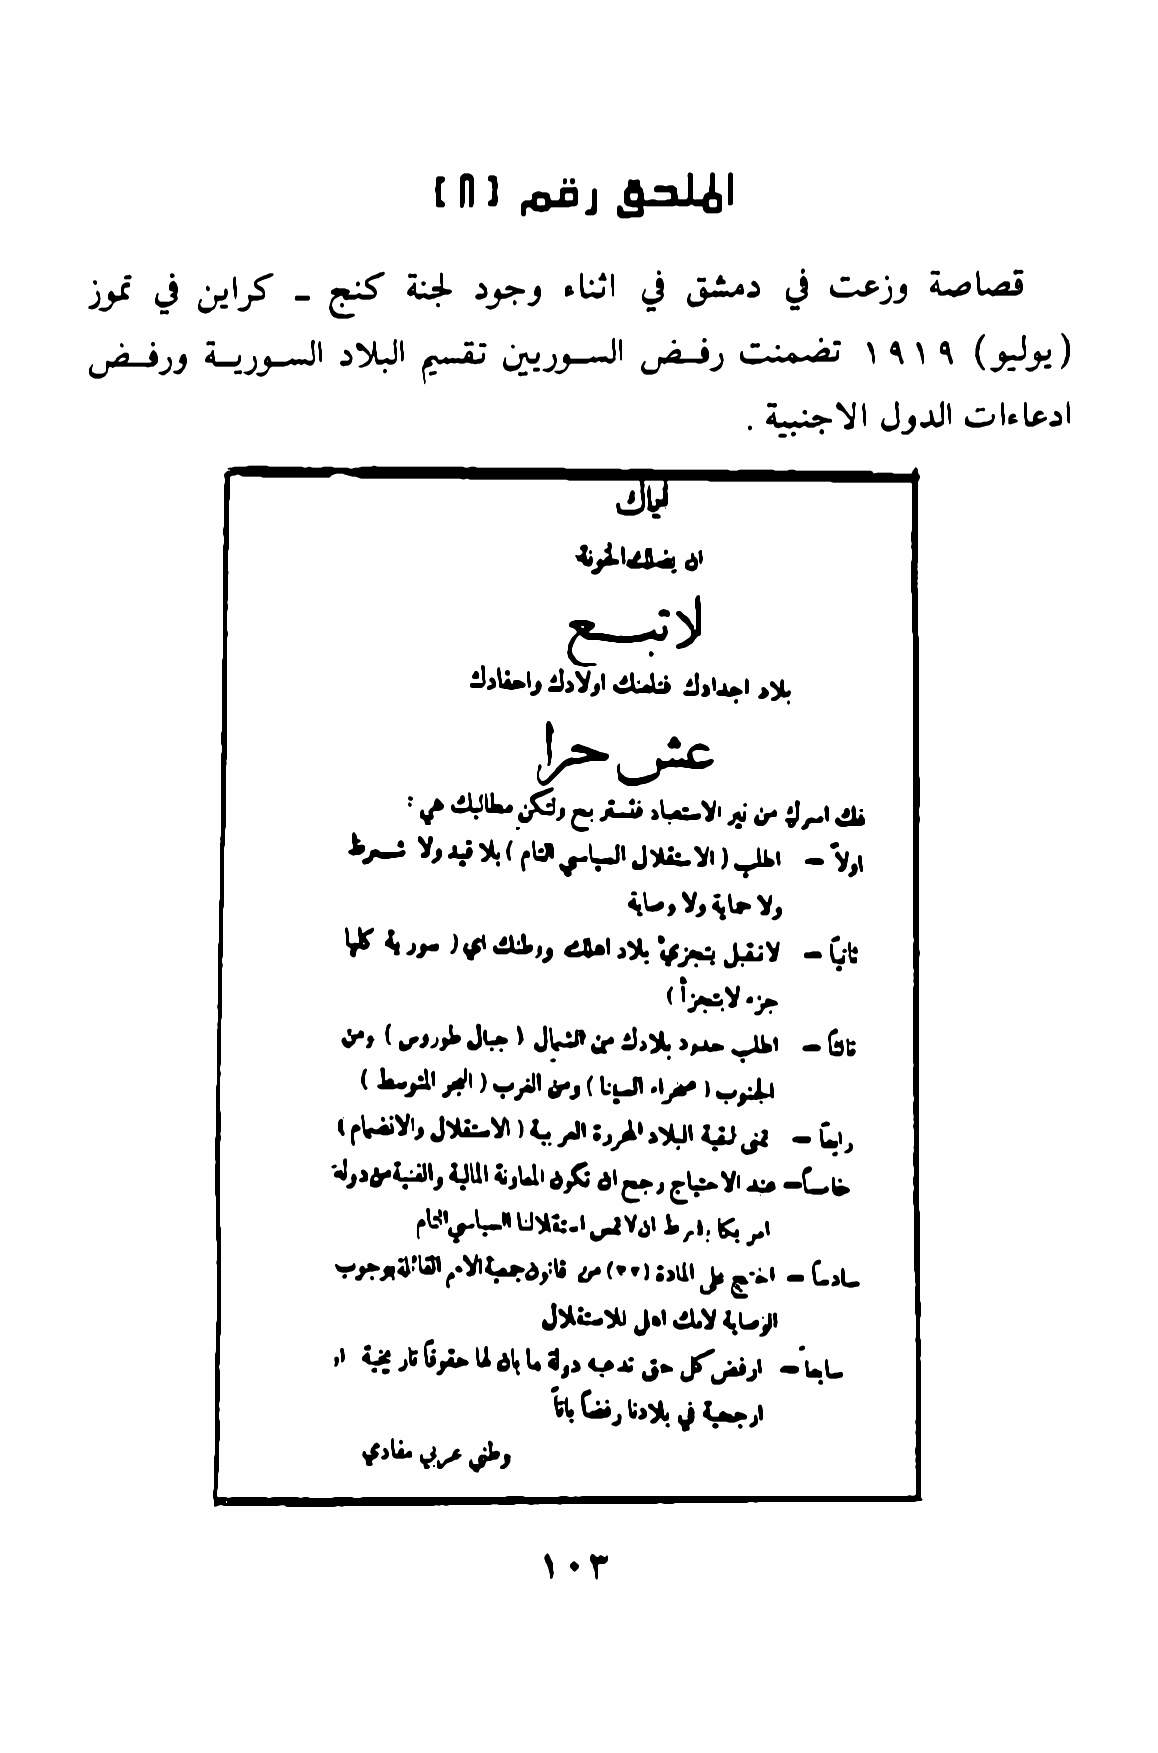 الملحق رقم (٨)
قصاصة وزعت في دمشق في اثناء وجود لجنة كنج - كراين في تموز
(يوليو) ١٩١٩ تضمنت رفض السوريين تقسيم البلاد السورية ورفض
ادعاءات الدول الاجنبية .
اياك
ان يضلك الخونة
لا تبع
بلاد اجدادك فتلعنك اولادك واحفادك
عش حرا
فك اسرك من نير الاستعباد فتستريح ولتكن مطالبك هي :
اولاً - اطلب ( الاستقلال السياسي التام ) بلا قيد ولا شرط
ولا حماية ولا وصاية
ثانياً - لا تقبل بتجزيء بلاد اهلك ووطنك اي ( سورية كلها
جزء لا يتجزأ )
ثالثاً - اطلب حدود بلادك من الشمال ( جبال طوروس ) ومن
الجنوب ( صحراء السينا ) ومن الغرب ( البحر المتوسط )
رابعاً - تمنى لبقية البلاد المحررة العربية ( الاستقلال والانضمام )
خامساً - عند الاحتياج رجح ان تكون المعاونة المالية والفنية من دولة
امريكا بشرط ان لا تمس استقلالنا السياسي التام
سادساً - احتج على المادة (٢٢) من قانون جمعية الامم القائلة بوجوب
الوصاية لامك اهل للاستقلال
سابعاً - ارفض كل حق تدعيه دولة ما بان لها حقوقاً تاريخية او
ارجحية في بلادنا رفضاً باتاً
وطني عربي مفادي
١٠٣